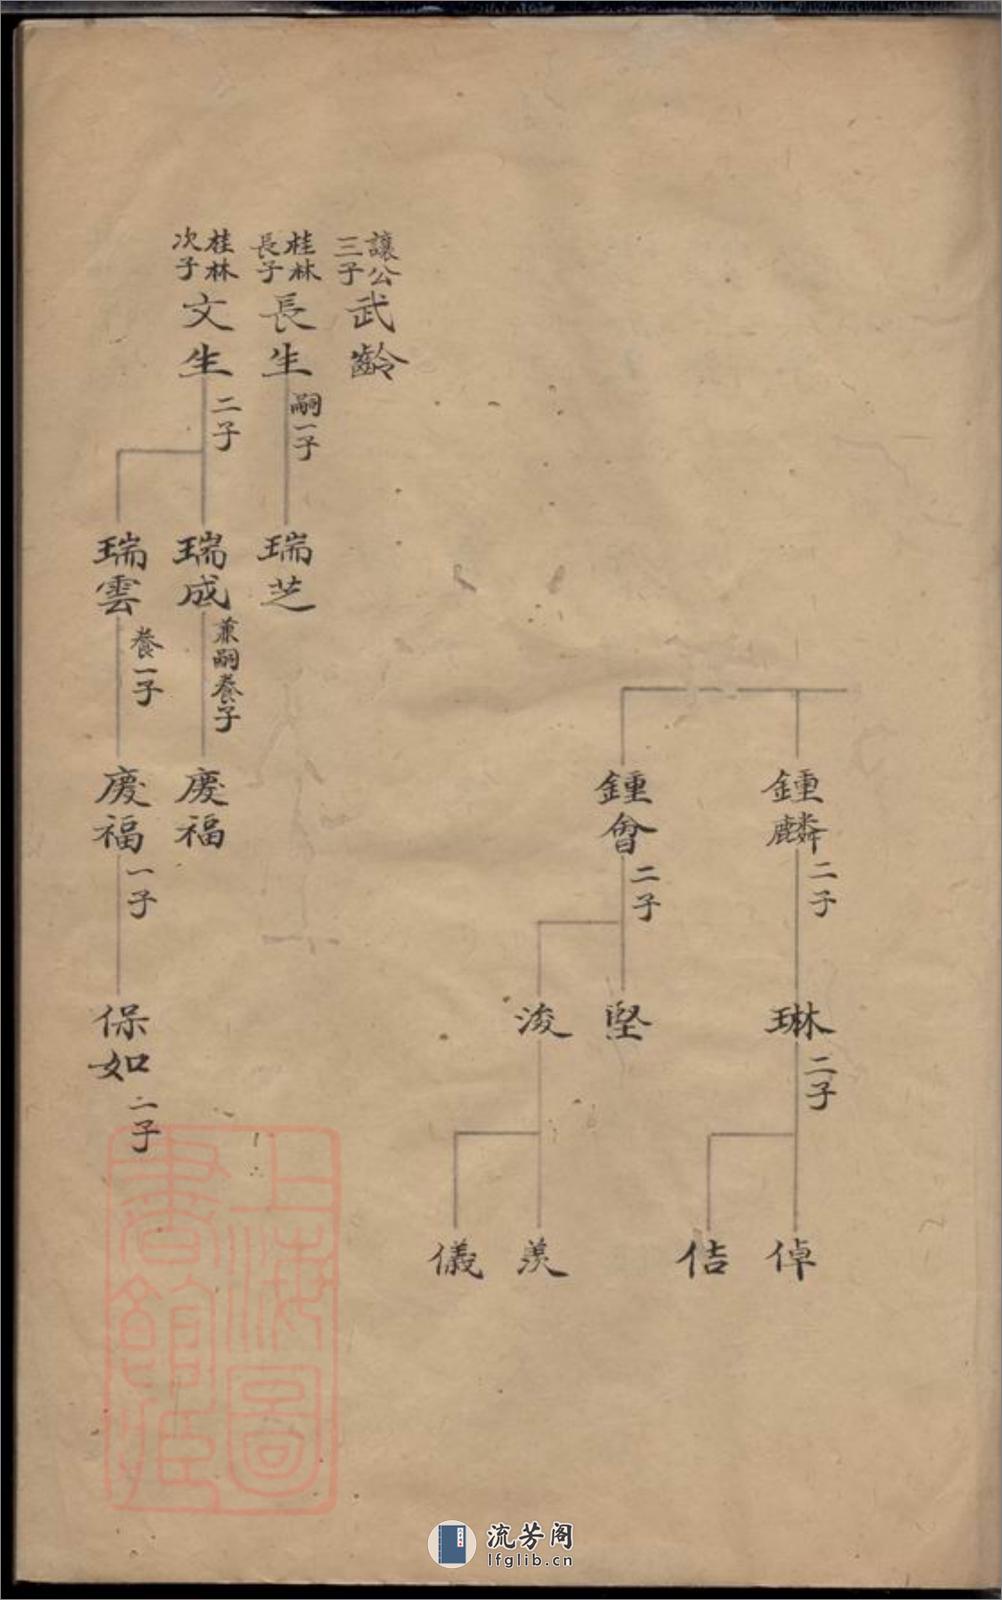 鍾麟
二子
琳
二子
倬
佶
鍾會
二子
堅
浚
羨
儀
讓公
三子
武齡
桂林
長子
長生
嗣一子
瑞芝
桂林
次子
文生
二子
瑞成
兼嗣養子
慶福
瑞雲
養一子
慶福
一子
保如
二子
上海圖
書館藏
流芳阁
lfglib.cn